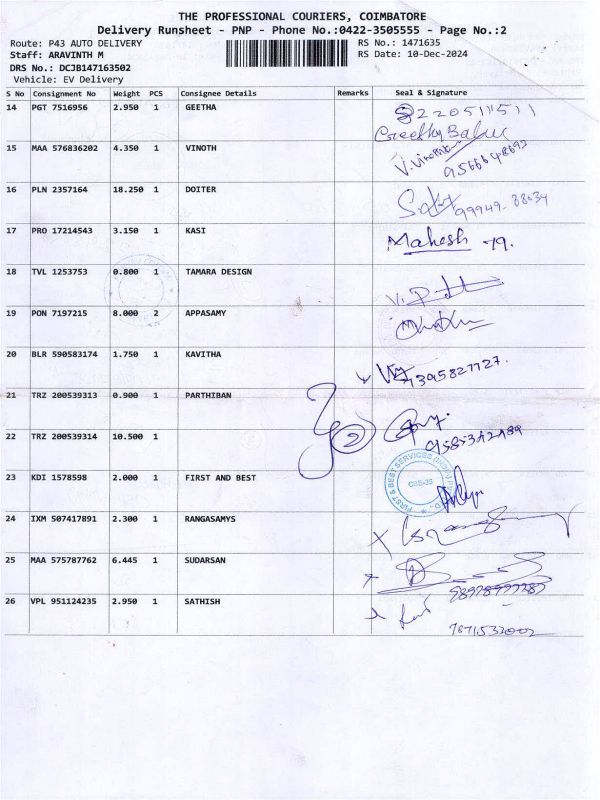 THE PROFESSIONAL COURIERS, COIMBATORE
Delivery Runsheet - PNP - Phone No.:0422-3505555 - Page No.:2
Route: P43 AUTO DELIVERY RS No.: 1471635
Staff: ARAVINTH M RS Date: 10-Dec-2024
DRS No.: DCJB147163502
Vehicle: EV Delivery
S No Consignment No Weight PCS Consignee Details Remarks Seal & Signature
14 PGT 7516956 2.950 1 GEETHA 8220511511
15 MAA 576836202 4.350 1 VINOTH
16 PLN 2357164 18.250 1 DOITER
17 PRO 17214543 3.150 1 KASI Mahesh 79.
18 TVL 1253753 0.800 1 TAMARA DESIGN
19 PON 7197215 8.000 2 APPASAMY
20 BLR 590583174 1.750 1 KAVITHA
21 TRZ 200539313 0.900 1 PARTHIBAN
22 TRZ 200539314 10.500 1
23 KDI 1578598 2.000 1 FIRST AND BEST
24 IXM 507417891 2.300 1 RANGASAMYS
25 MAA 575787762 6.445 1 SUDARSAN
26 VPL 951124235 2.950 1 SATHISH